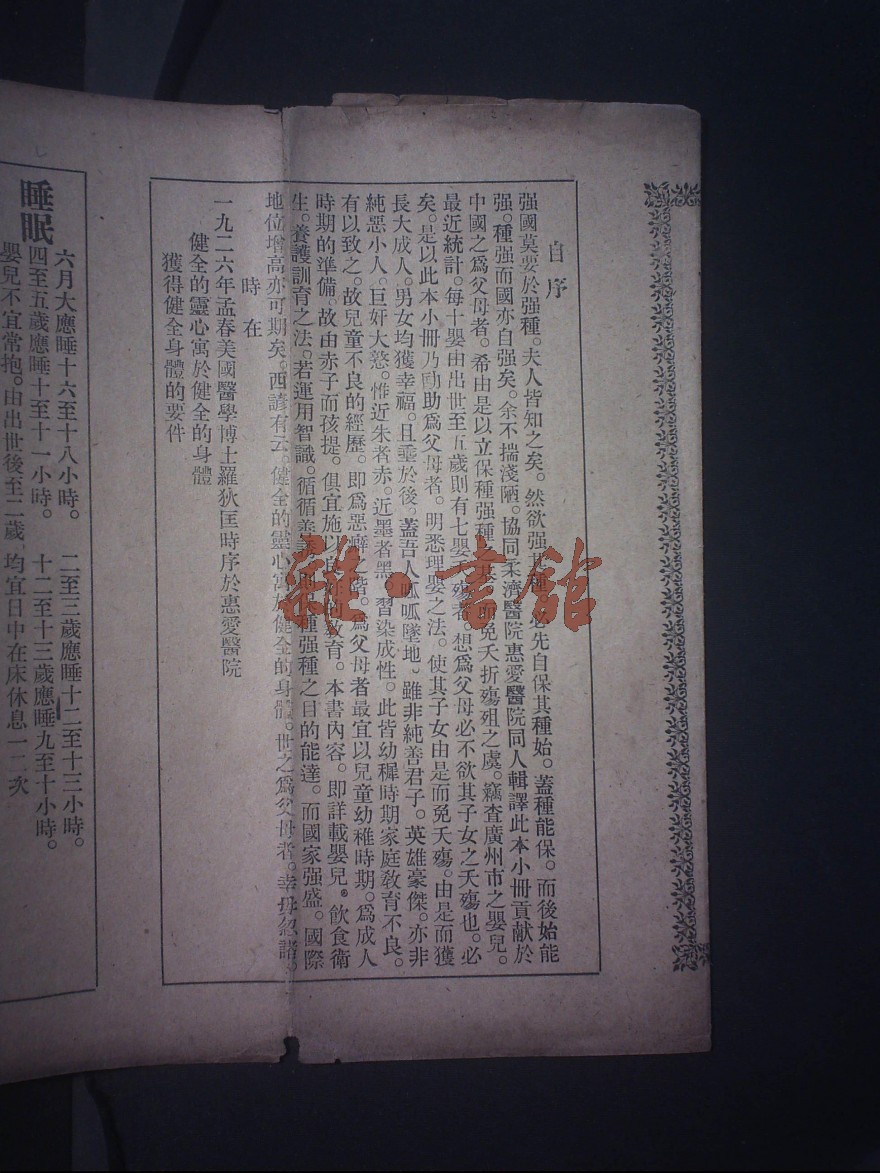 自序
强國莫要於强種。夫人皆知之矣。然欲强其種。必先自保其種始。蓋種能保。而後始能
强。種强而國亦自强矣。余不揣淺陋。協同柔濟醫院惠愛醫院同人輯譯此本小冊貢献於
中國之爲父母者。希由是以立保種强種之基。而免夭折殤殂之虞。竊查廣州市之嬰兒。
最近統計。每十嬰由出世至五歲則有七嬰夭殤者。想爲父母必不欲其子女之夭殤也。必
矣。是以此本小冊乃勖助爲父母者。明悉理嬰之法。使其子女由是而免夭殤。由是而獲
長大成人。男女均獲幸福。且垂於後。蓋吾人呱呱墜地。雖非純善君子。英雄豪傑。亦非
純惡小人。巨奸大憝。惟近朱者赤。近墨者黑。習染成性。此皆幼穉時期家庭教育不良。
有以致之。故兒童不良的經歷。即爲惡癖之階。爲父母者最宜以兒童幼稚時期。爲成人
時期的準備。故由赤子而孩提。俱宜施以良好的教育。本書內容。即詳載嬰兒。飲食衛
生。養護訓育之法。若運用智識。循循善誘。則保種强種之目的能達。而國家强盛。國際
地位增高亦可期矣。西諺有云。健全的靈心寓於健全的身體。世之爲父母者。幸毋忽諸。
時在
一九二六年孟春美國醫學博士羅狄匡時序於惠愛醫院
健全的靈心寓於健全的身體
獲得健全身體的要件
睡眠
六月大應睡十六至十八小時。 二至三歲應睡十二至十三小時。
四至五歲應睡十至十一小時。 十二至十三歲應睡九至十小時。
嬰兒不宜常抱。由出世後至二歲。均宜日中在床休息一二次
雜·書館